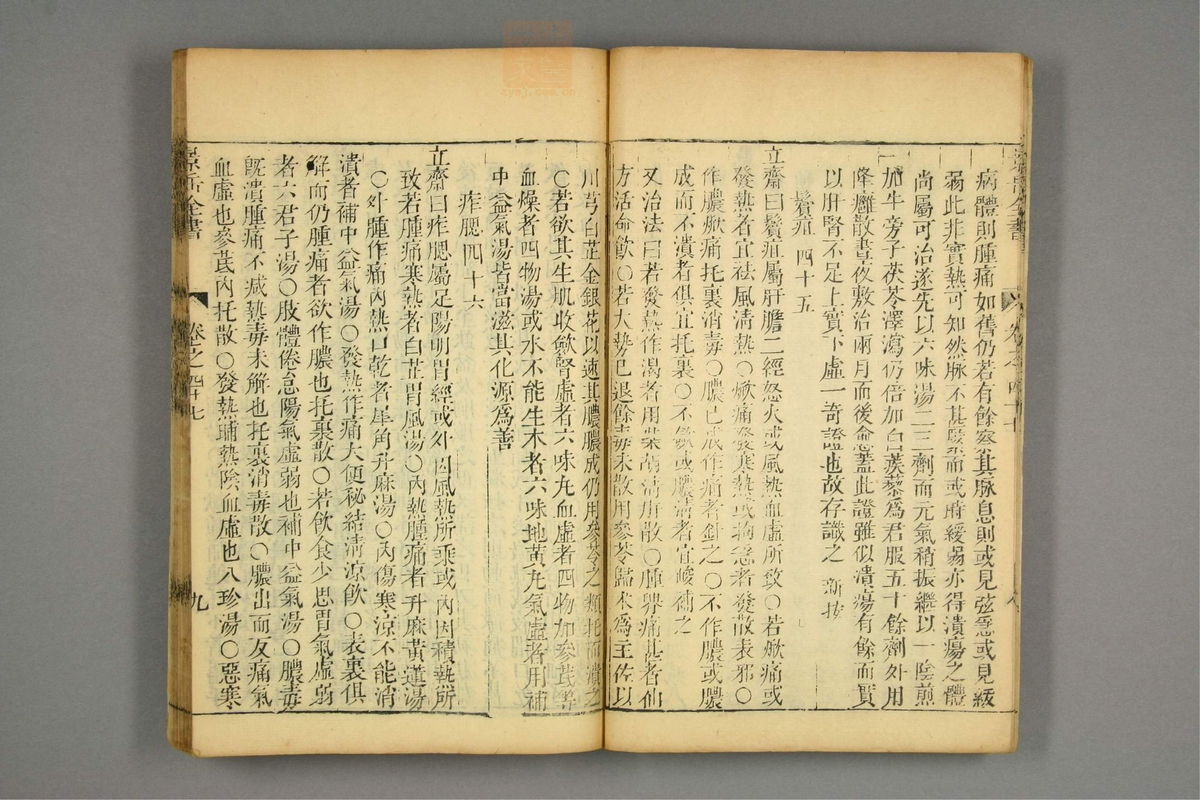 病體則腫痛如舊仍若有餘察其脉息則或見弦急或見緩
弱此非實熱可知然脉不甚緊而或時緩弱亦得潰瘍之體
尚屬可治遂先以六味湯二三劑而元氣稍振繼以一陰煎
加牛旁子茯苓澤瀉仍倍加白蒺藜為君服五十餘劑外用
降癰散晝夜敷治兩月而後愈蓋此證雖似潰瘍有餘而實
以肝腎不足上實下虛一奇證也故存識之 新按
鬢疽 四十五
立齋曰鬢疽屬肝膽二經怒火或風熱血虛所致〇若焮痛或
發熱者宜祛風清熱〇焮痛發寒熱或拘急者發散表邪〇
作膿焮痛托裏消毒〇膿已成作痛者針之〇不作膿或膿
成而不潰者俱宜托裏〇不斂或膿清者宜峻補之
又治法曰若發熱作渴者用柴胡清肝散〇腫焮痛甚者仙
方活命飲〇若大勢已退餘毒未散用參芩歸朮為主佐以
川芎白芷金銀花以速其膿膿成仍用參芩之類托而潰之
〇若欲其生肌收斂腎虛者六味丸血虛者四物加參芪等
血燥者四物湯或水不能生木者六味地黃丸氣虛者用補
中益氣湯皆當滋其化源為善
痄腮 四十六
立齋曰痄腮屬足陽明胃經或外因風熱所乘或內因積熱所
致若腫痛寒熱者白芷胃風湯〇內熱腫痛者升麻黃連湯
〇外腫作痛內熱口乾者犀角升麻湯〇內傷寒涼不能消
潰者補中益氣湯〇發熱作痛大便秘結清涼飲〇表裏俱
解而仍腫痛者欲作膿也托裏散〇若飲食少思胃氣虛弱
者六君子湯〇肢體倦怠陽氣虛弱也補中益氣湯〇膿毒
既潰腫痛不減熱毒未解也托裏消毒散〇膿出而反痛氣
血虛也參芪內托散〇發熱晡熱陰血虛也八珍湯〇惡寒
景岳全書
卷之四十七
九